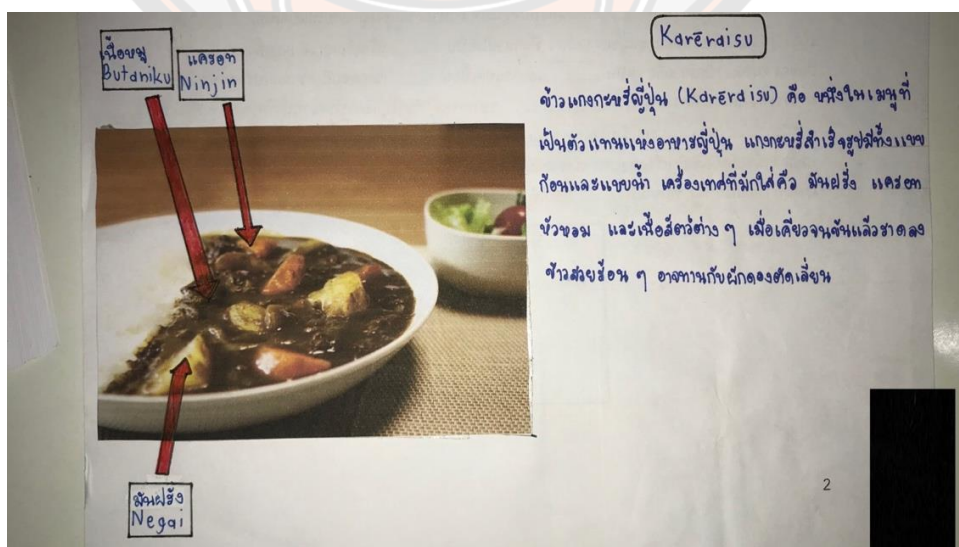 Karēraisu
เนื้อหมู
Butaniku
แครอท
Ninjin
ข้าวแกงกะหรี่ญี่ปุ่น (Karēraisu) คือ หนึ่งในเมนูที่
เป็นตัวแทนแห่งอาหารญี่ปุ่น แกงกะหรี่สำเร็จรูปมีทั้งแบบ
ก้อนและแบบน้ำ เครื่องเทศที่มักใส่คือ มันฝรั่ง แครอท
หัวหอม และเนื้อสัตว์ต่าง ๆ เมื่อเคี่ยวจนข้นแล้วราดลง
ข้าวสวยร้อน ๆ อาจทานกับผักดองตัดเลี่ยน
มันฝรั่ง
Negai
2